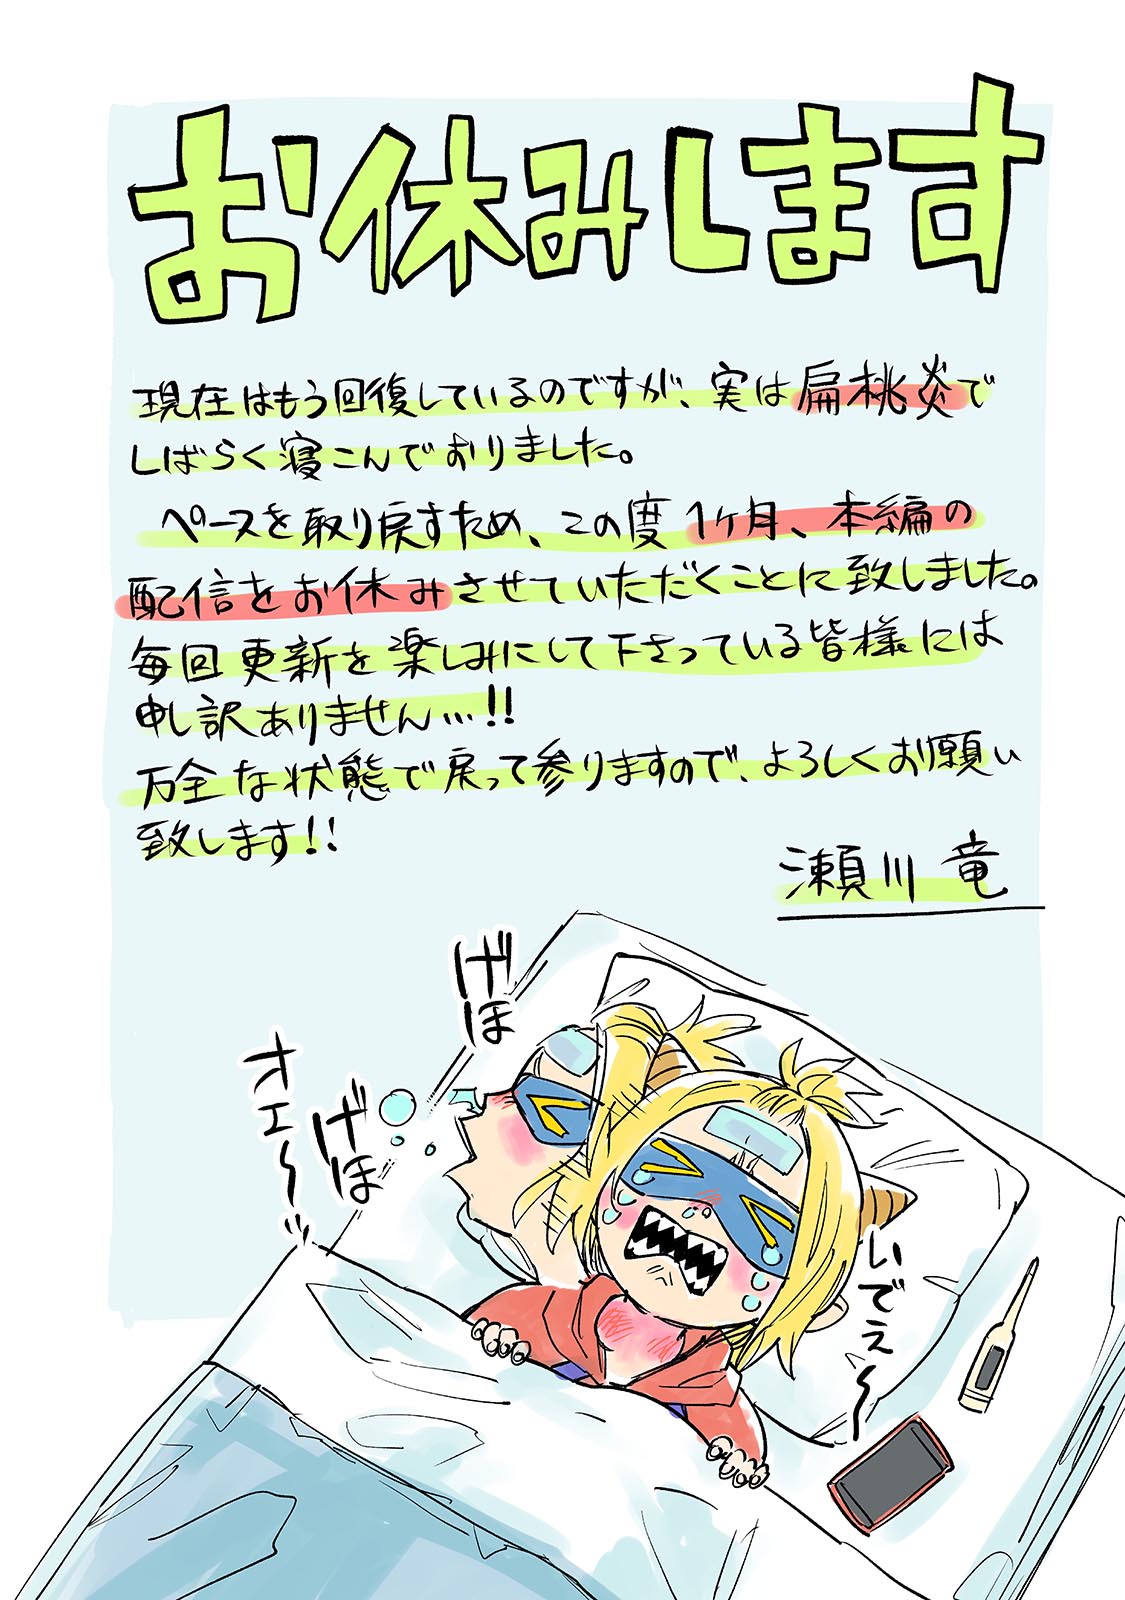 お休みします
現在はもう回復しているのですが、実は扁桃炎で
しばらく寝こんでおりました。
ペースを取り戻すため、この度1ヶ月、本編の
配信をお休みさせていただくことに致しました。
毎回更新を楽しみにして下さっている皆様には
申し訳ありません…!!
万全な状態で戻って参りますので、よろしくお願い
致します!!
瀬川 竜
げほ
げほ
オエ〜〜
いでえ〜〜